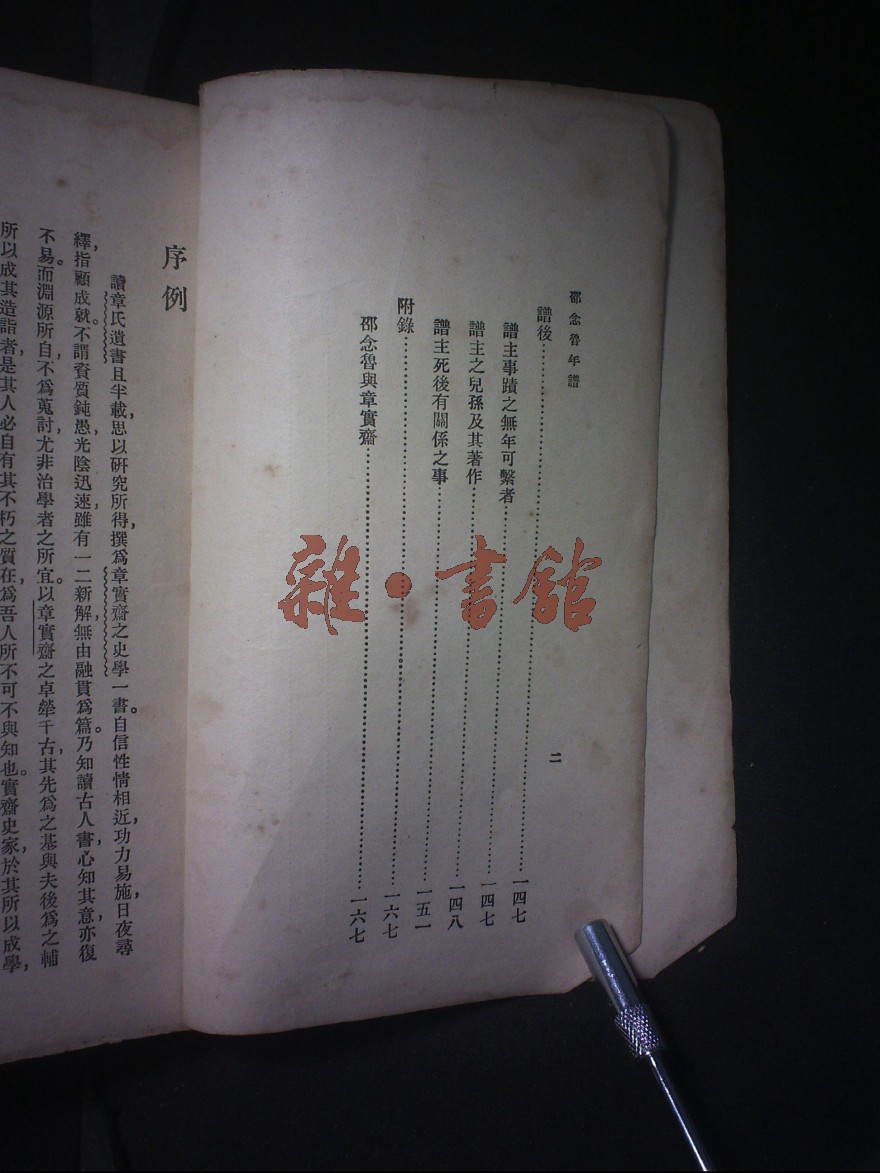 邵念魯年譜
譜後……一四七
譜主事蹟之無年可繫者……一四七
譜主之兒孫及其著作……一四八
譜主死後有關係之事……一五一
附錄……一六七
邵念魯與章實齋……一六七
二
雜·書館
序例
讀章氏遺書且半載,思以研究所得,撰爲章實齋之史學一書。自信性情相近,功力易施,日夜尋
繹,指顧成就。不謂資質鈍愚,光陰迅速,雖有一二新解,無由融貫爲篇。乃知讀古人書,心知其意,亦復
不易。而淵源所自,不爲蒐討,尤非治學者之所宜。以章實齋之卓犖千古,其先爲之基與夫後爲之輔
所以成其造詣者,是其人必自有其不朽之質在,爲吾人所不可不與知也。實齋史家,於其所以成學,